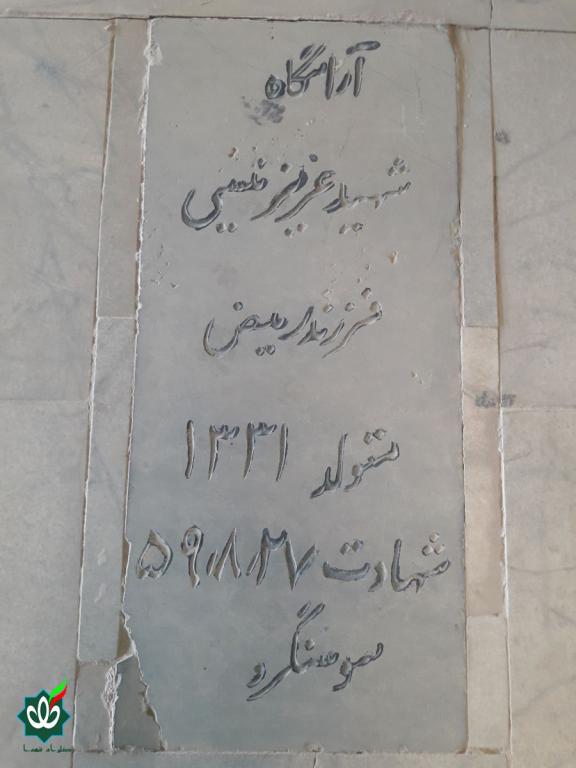 آرامگاه
شهید عزیز نیسی
فرزند رمیض
متولد ۱۳۳۱
شهادت ۵۹/۸/۲۷
سوسنگرد